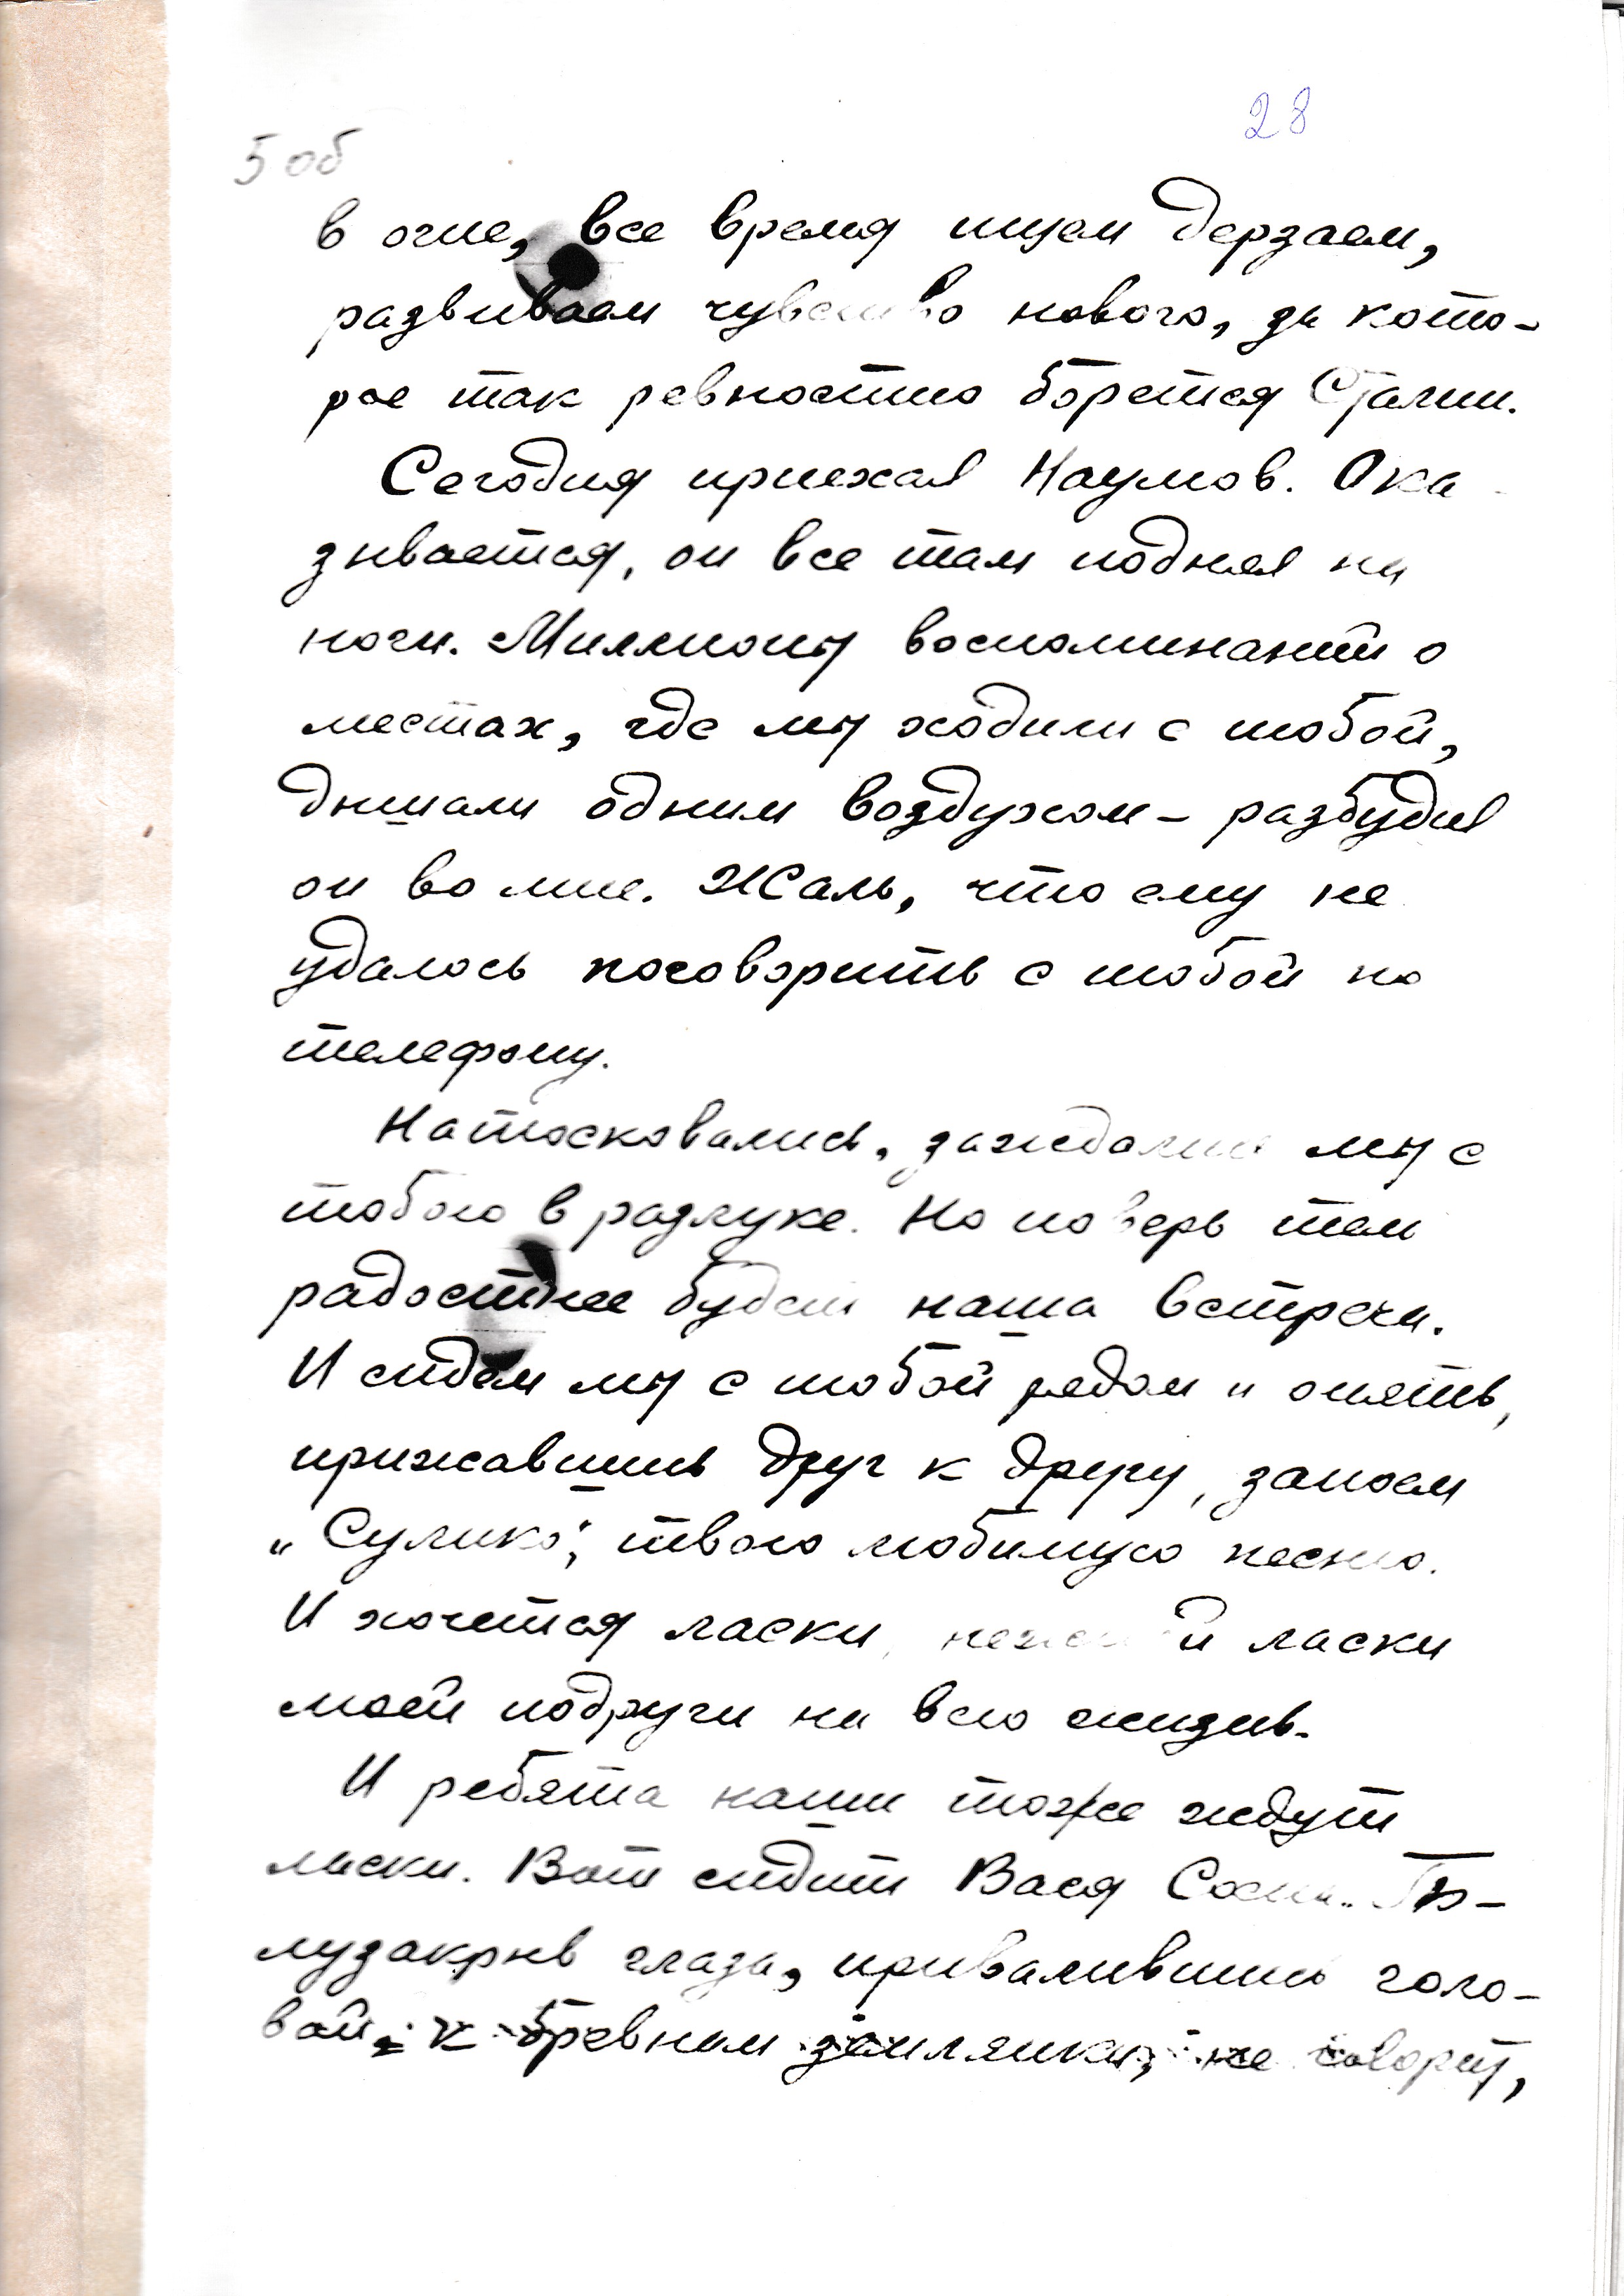 28
5 об
в огне, все время ищем дерзаем,
развиваем чувство нового, за кото-
рое так ревностно борется Сталин.
Сегодня приехал Наумов. Ока
зывается, он все там поднял на
ноги. Миллионы воспоминаний о
местах, где мы ходили с тобой,
дышали одним воздухом – разбудил
он во мне. Жаль, что ему не
удалось поговорить с тобой по
телефону.
Натосковались, заждались мы с
тобою в разлуке. Но поверь тем
радостнее будет наша встреча.
И сидем мы с тобой рядом и опять,
прижавшись друг к другу, запоем
„Сулико", твою любимую песню.
И хочется ласки, нежной ласки
моей подруги на всю жизнь.
И ребята наши тоже ждут
ласки. Вот сидит Вася По-
лузакрыв глаза, привалившись голо-
вой, к бревнам землянки, не говорит,